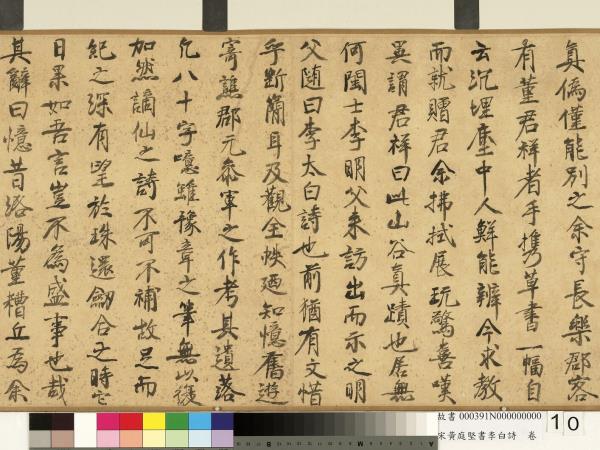 真偽僅能別之余守長樂郡客
有董君祥者手携草書一幅自
云沉埋塵中人鮮能辨今求教
而就贈君余拂拭展玩驚喜嘆
異謂君祥曰此山谷真蹟也居無
何閩士李明父來訪出而示之明
父随曰李太白詩也前猶有文惜
乎斷簡耳及觀全帙廼知憶舊遊
寄譙郡元叅軍之作考其遺落
凢八十字噫雖豫章之筆無以復
加然謫仙之詩不可不補故足而
紀之深有望於珠還劒合之時它
日果如吾言豈不為盛事也哉
其辭曰憶昔洛陽董糟丘為余
故書 000391N000000000
宋黃庭堅書李白詩 卷
10